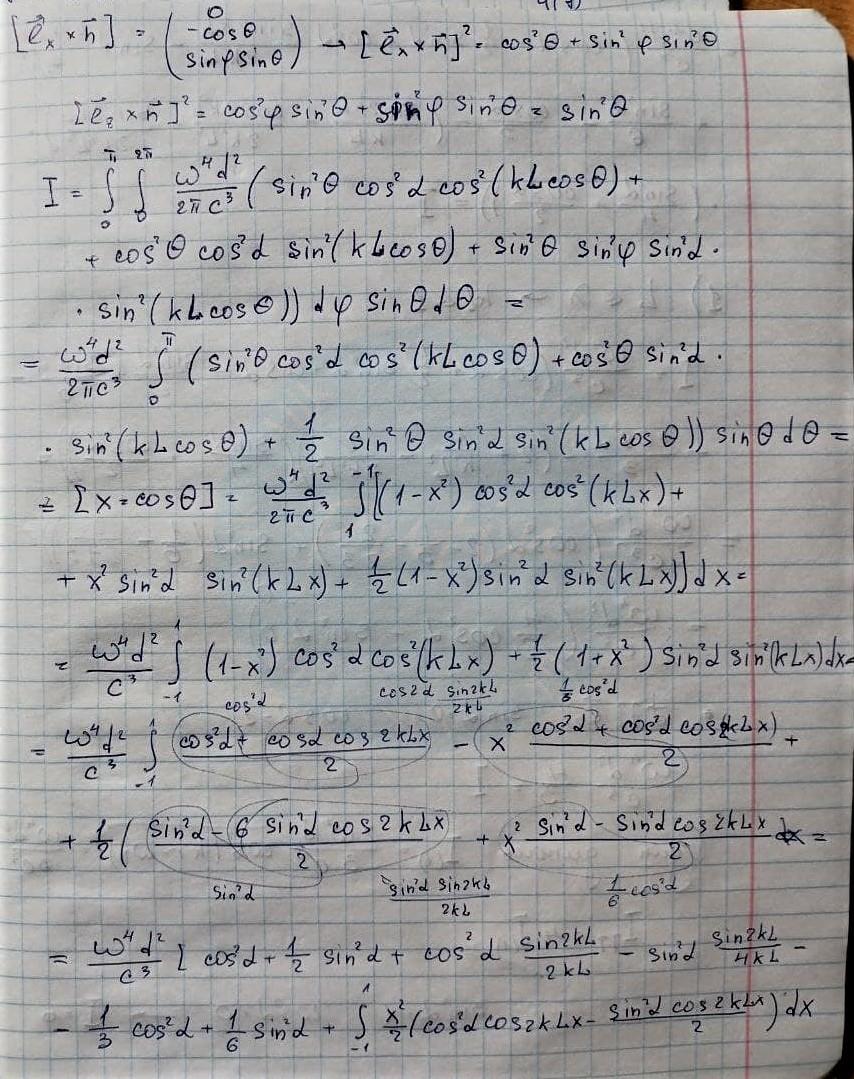 [e⃗ₓ × n⃗] = (0 -cosθ sinφ sinθ) → [e⃗ₓ × n⃗]² = cos²θ + sin²φ sin²θ
[e⃗_z × n⃗]² = cos²φ sin²θ + sin²φ sin²θ = sin²θ
I = ∫₀^π ∫₀^2π ω⁴d²/2πc³ (sin²θ cos²α cos²(kL cosθ) +
+ cos²θ cos²α sin²(kL cosθ) + sin²θ sin²φ sin²α ·
· sin²(kL cosθ)) dφ sinθ dθ =
= ω⁴d²/2πc³ ∫₀^π (sin²θ cos²α cos²(kL cosθ) + cos²θ sin²α ·
· sin²(kL cosθ) + 1/2 sin²θ sin²α sin²(kL cosθ)) sinθ dθ =
= [x = cosθ] = ω⁴d²/2πc³ ∫₁^-1 [(1-x²) cos²α cos²(kLx) +
+ x² sin²α sin²(kLx) + 1/2 (1-x²) sin²α sin²(kLx)] dx =
= ω⁴d²/c³ ∫₋₁^1 (1-x²) cos²α cos²(kLx) + 1/2 (1+x²) sin²α sin²(kLx) dx =
cos²α cos2α sin2kL/2kL 1/3 cos²α
= ω⁴d²/c³ ∫₋₁^1 cos²α + cosα cos2kLx/2 - x² cos²α + cos²α cos(2kLx)/2 +
+ 1/2 ( sin²α - 6 sin²α cos2kLx/2 + x² sin²α - sin²α cos2kLx/2 dx =
sin²α sin²α sin2kL/2kL 1/6 cos²α
= ω⁴d²/c³ [ cos²α + 1/2 sin²α + cos²α sin2kL/2kL - sin²α sin2kL/4kL -
- 1/3 cos²α + 1/6 sin²α + ∫₋₁^1 x²/2 (cos²α cos2kLx - sin²α cos2kLx/2) dx